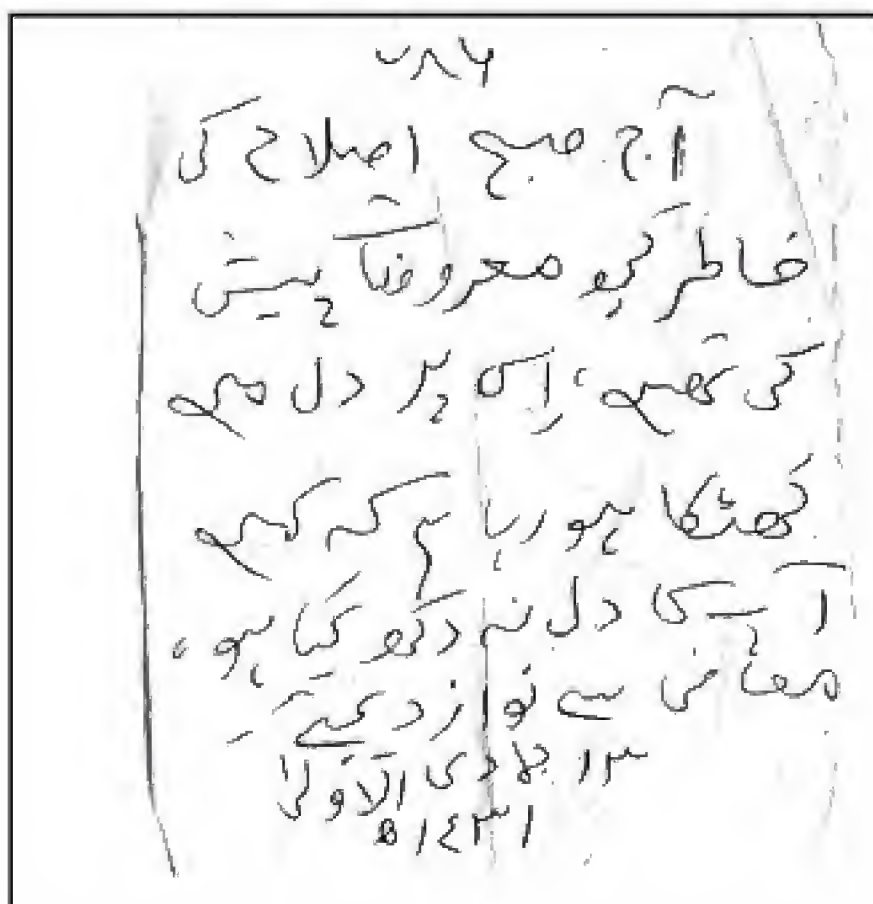 ۷۸۶
آج صبح اصلاح کی
خاطر کچھ معروضات پیش
کی تھیں، اس پر دل میں
کھٹکا ہو رہا ہے کہ کہیں
آپ کا دل نہ دکھ گیا ہو،
معافی سے نواز دیجئے
۱۳ جمادی الاولیٰ
۱۴۳۱ھ